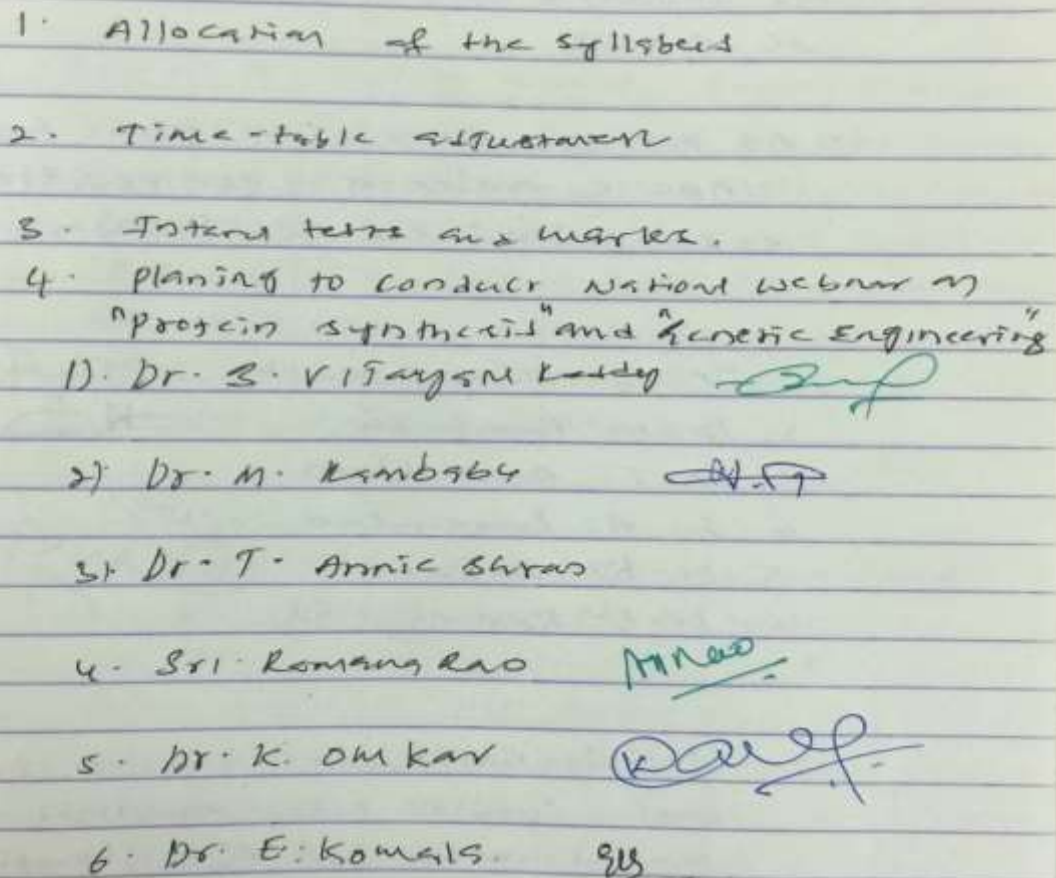 1. Allocation of the syllabus
2. Time-table adjustment
3. Internal tests and marks.
4. planing to conduct National webinar on
"protein synthesis" and "Genetic Engineering"
1). Dr. S. Vijayasri Reddy
2) Dr. M. Rambabu
3) Dr. T. Annie
4. Sri. Ramana Rao
5. Dr. K. Omkar
6. Dr. E. Komala